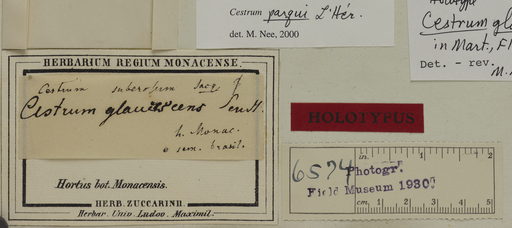 Cestrum parqui L'Hér.
det. M. Nee, 2000
Holotype
Cestrum gla
in Mart., Fl
Det. - rev.
M.
HERBARIUM REGIUM MONACENSE.
Cestrum suberosum Jacq
Cestrum glaucescens
h. Monac.
e sem. brasil.
Hortus bot. Monacensis.
HERB. ZUCCARINII.
Herbar. Univ. Ludov. Maximil.
HOLOTYPUS
6574
Photogr.
Field Museum 1930
in. 1 2
cm. 1 2 3 4 5